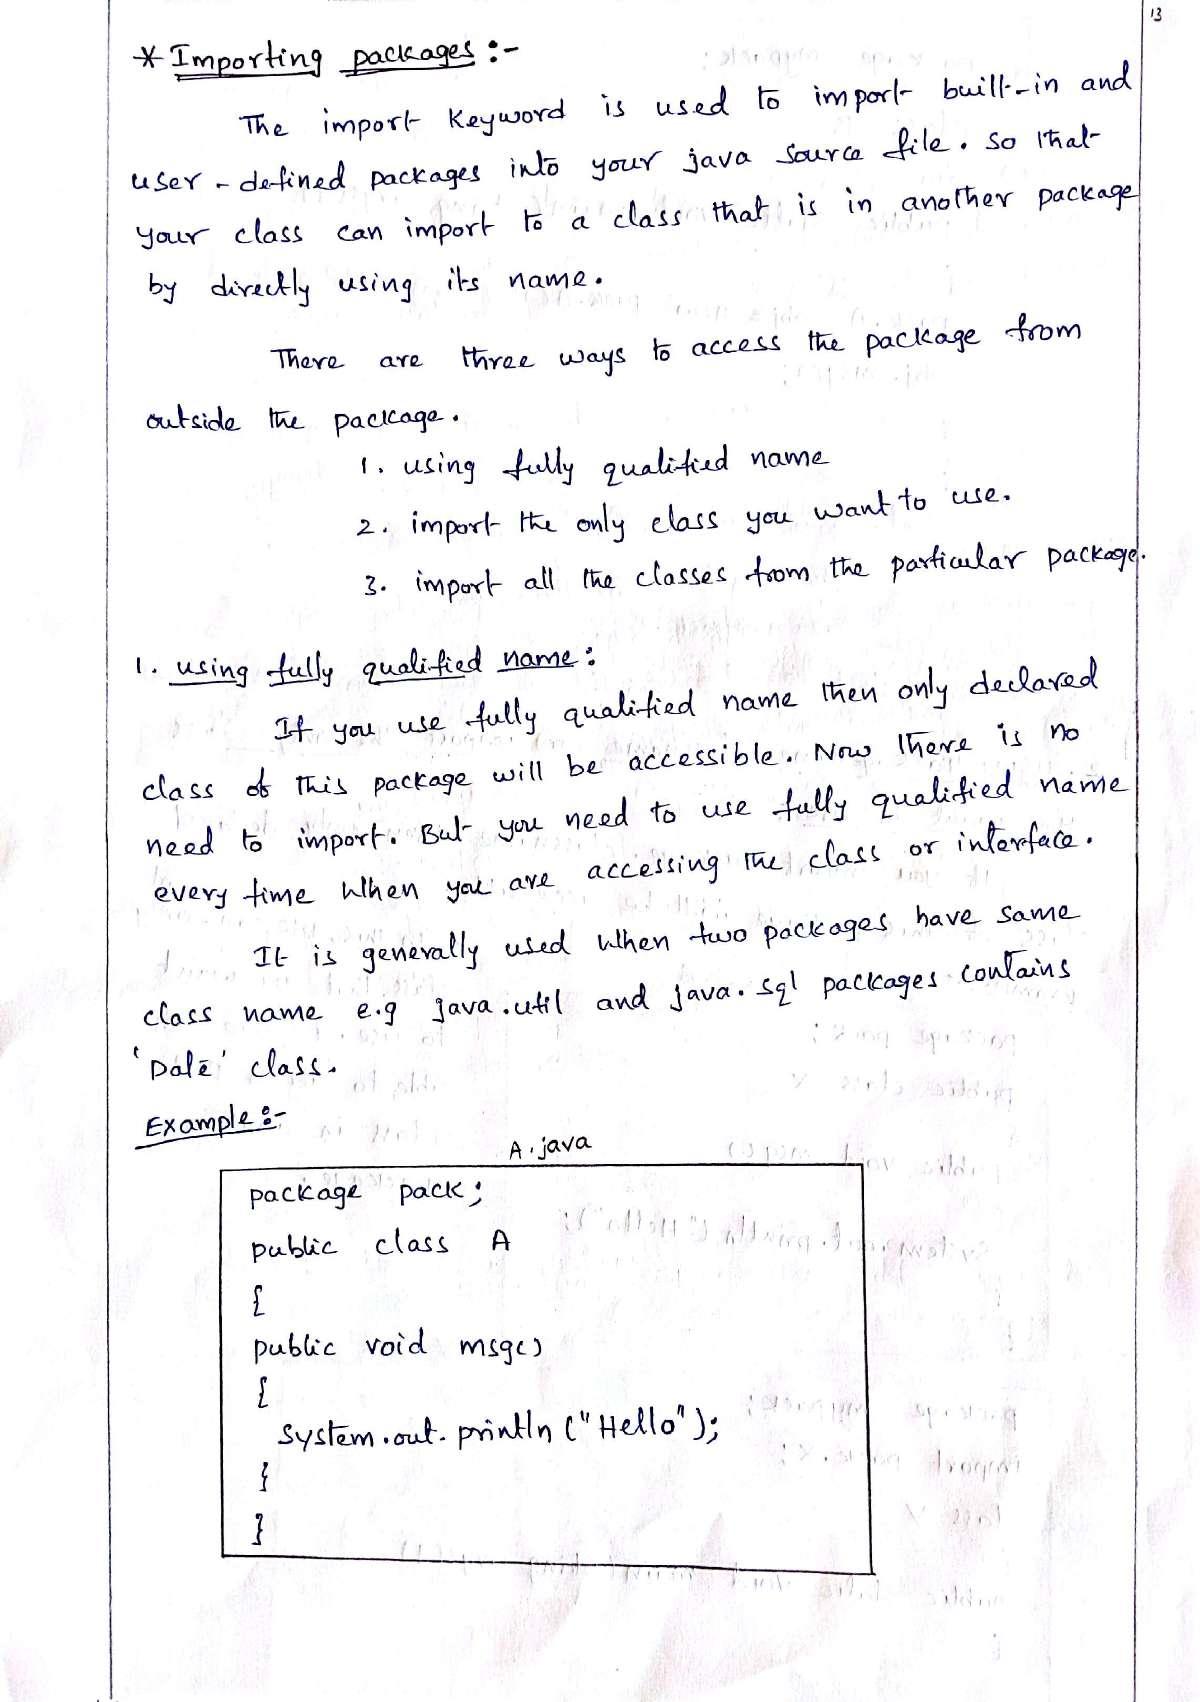 13
* Importing packages :-
The import keyword is used to import built-in and
user-defined packages into your java source file. so that
your class can import to a class that is in another package
by directly using its name.
There are three ways to access the package from
outside the package.
1. using fully qualified name
2. import the only class you want to use.
3. import all the classes from the particular package.
1. using fully qualified name :
If you use fully qualified name then only declared
class of this package will be accessible. Now there is no
need to import. But you need to use fully qualified name
every time when you are accessing the class or interface.
It is generally used when two packages have same
class name e.g java.util and java.sql packages contains
'Date' class.
Example :-
A.java
package pack;
public class A
{
public void msg()
{
System.out.println("Hello");
}
}